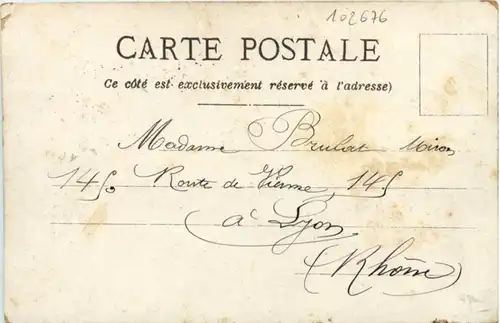 102676
CARTE POSTALE
Ce côté est exclusivement réservé à l'adresse)
Madame Brulat
145. Route de Vienne, 145
à Lyon
(Rhône)